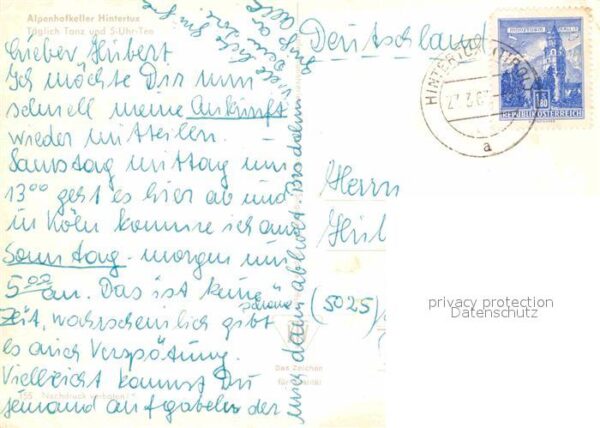 Alpenhofkeller Hintertux
Täglich Tanz und 5-Uhr-Tee
Lieber Hubert
Ich möchte Dir nun
schnell meine Ankunft
wieder mitteilen.
Samstag mittag um
13⁰⁰ geht es hier ab und
in Köln komme ich am
Sonntag morgen um
5⁰⁰ an. Das ist keine
schöne
Zeit, wahrscheinlich gibt
es auch Verspätung.
Vielleicht kannst Du
jemand aufgabeln der
mich dann abholt. Bis dahin
viele liebe
alle
Deutschland
HINTERTUX (TIROL)
a
REPUBLIK ÖSTERREICH
Herrn
(5025)
Das Zeichen
für Qualität
Nachdruck verboten!
privacy protection
Datenschutz